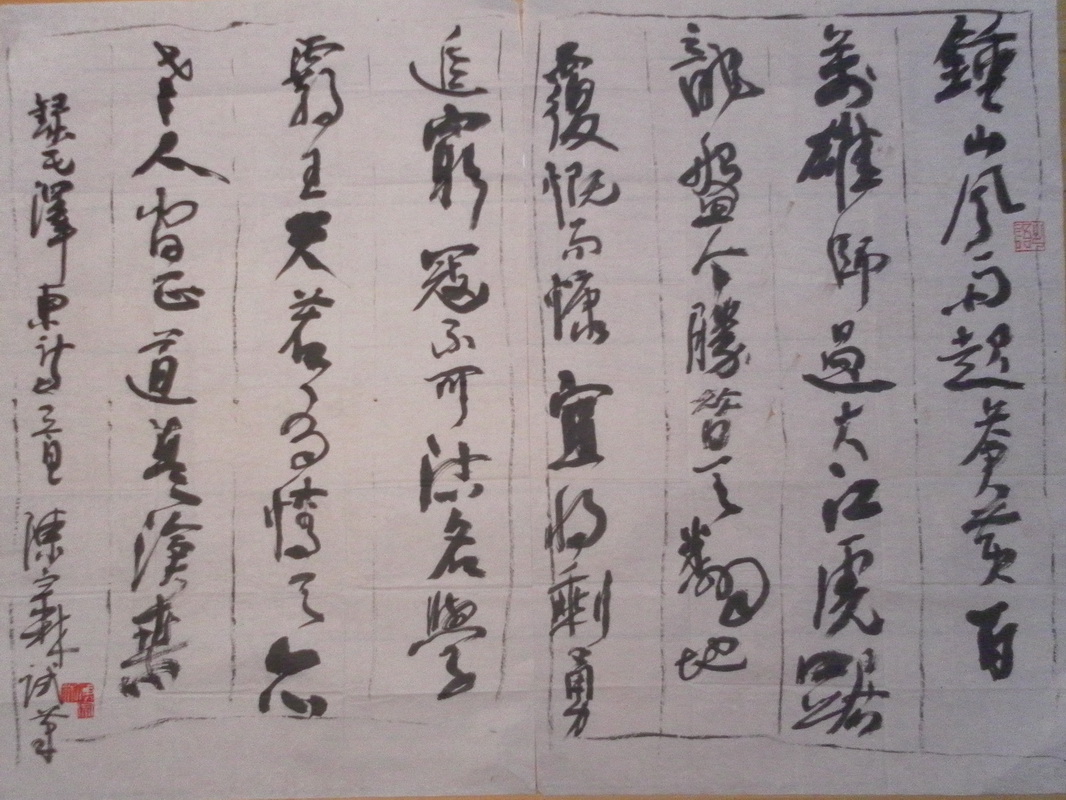 鍾山風雨起蒼黃百
萬雄師過大江虎踞
龍盤今勝昔天翻地
覆慨而慷宜將剩勇
追窮寇不可沽名學
霸王天若有情天亦
老人間正道是滄桑
錄毛澤東詩一首 陳 試筆